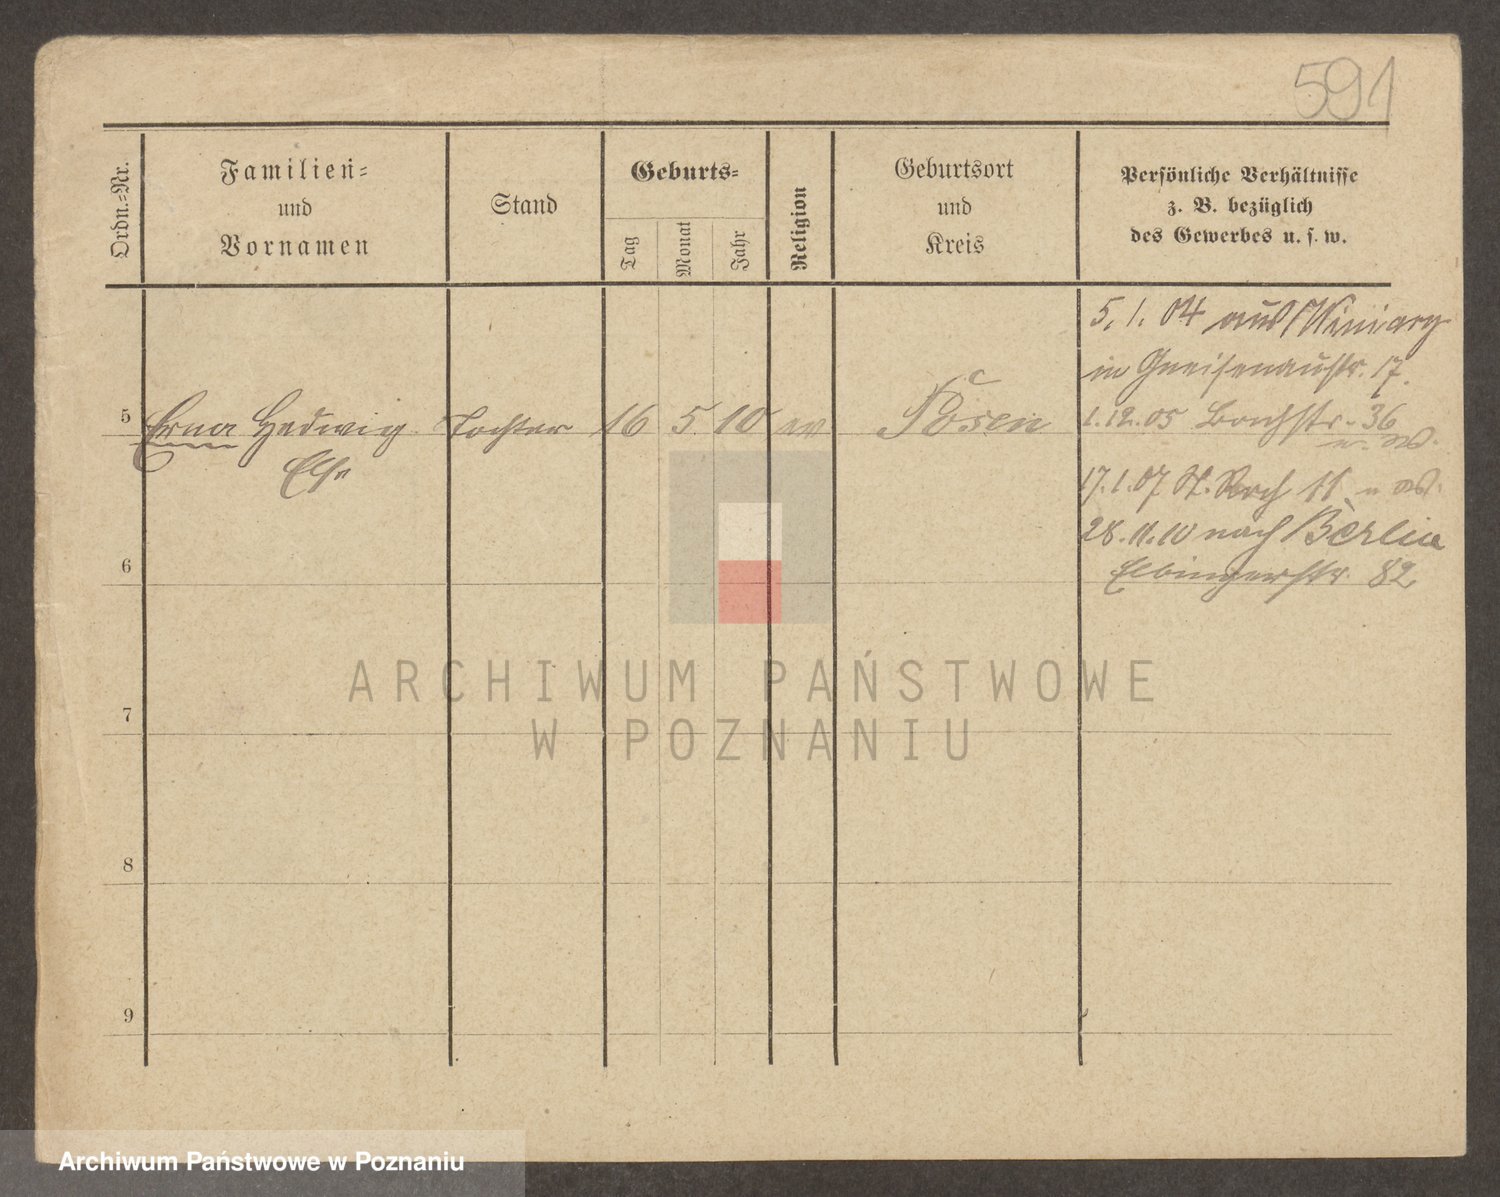 591
Ordn.-Nr.
Familien-
und
Vornamen
Stand
Geburts-
Tag
Monat
Jahr
Religion
Geburtsort
und
Kreis
Persönliche Verhältnisse
z. B. bezüglich
des Gewerbes u. s. w.
5. 1. 04 aus Winiary
in Gneisenaustr. 17.
5 Erna Hedwig Tochter 16 5 10 ev Posen
Else
1.12.05 Bachstr. 36
17.1.07 St. Roch 11
28.11.10 nach Berlin
Elbingerstr. 82
6
7
8
9
ARCHIWUM PAŃSTWOWE
W POZNANIU
Archiwum Państwowe w Poznaniu